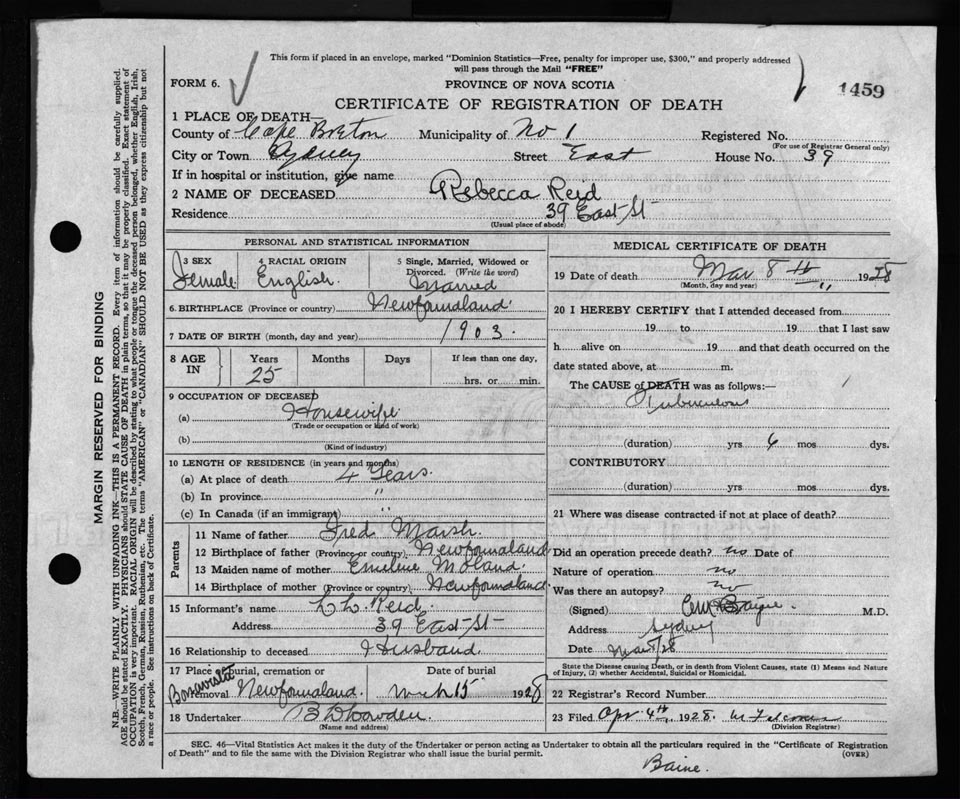 This form if placed in an envelope, marked "Dominion Statistics—Free, penalty for improper use, $300," and properly addressed
will pass through the Mail "FREE"
FORM 6.
PROVINCE OF NOVA SCOTIA
1459
CERTIFICATE OF REGISTRATION OF DEATH
1 PLACE OF DEATH—
County of Cape Breton Municipality of No 1 Registered No.
(For use of Registrar General only)
City or Town Sydney Street East House No. 39
If in hospital or institution, give name
2 NAME OF DECEASED Rebecca Reid
Residence 39 East St
(Usual place of abode)
PERSONAL AND STATISTICAL INFORMATION
3 SEX Female
4 RACIAL ORIGIN English
5 Single, Married, Widowed or Divorced. (Write the word) Married
6. BIRTHPLACE (Province or country) Newfoundland
7 DATE OF BIRTH (month, day and year) 1903.
8 AGE IN Years 25 Months Days If less than one day, hrs. or min.
9 OCCUPATION OF DECEASED
(a) Housewife
(Trade or occupation or kind of work)
(b)
(Kind of industry)
10 LENGTH OF RESIDENCE (in years and months)
(a) At place of death 4 Years.
(b) In province "
(c) In Canada (if an immigrant) "
Parents
11 Name of father Fred Marsh.
12 Birthplace of father (Province or country) Newfoundland
13 Maiden name of mother Emelene
14 Birthplace of mother (Province or country) Newfoundland.
15 Informant's name Reid.
Address 39 East St
16 Relationship to deceased Husband.
17 Place of burial, cremation or removal Bonavista Newfoundland. Date of burial Mch 15 1928
18 Undertaker
(Name and address)
MEDICAL CERTIFICATE OF DEATH
19 Date of death Mar 8th 1928
(Month, day and year)
20 I HEREBY CERTIFY that I attended deceased from
19 to 19 that I last saw
h alive on 19 and that death occurred on the
date stated above, at m.
The CAUSE of DEATH was as follows:—
Tuberculous
(duration) yrs 6 mos dys.
CONTRIBUTORY
(duration) yrs. mos. dys.
21 Where was disease contracted if not at place of death?
Did an operation precede death? no Date of
Nature of operation no
Was there an autopsy? no
(Signed) M.D.
Address Sydney
Date Mar 8/28
State the Disease causing Death, or in death from Violent Causes, state (1) Means and Nature
of Injury, (2) whether Accidental, Suicidal or Homicidal.
22 Registrar's Record Number
23 Filed Apr 4th 1928.
(Division Registrar)
SEC. 46—Vital Statistics Act makes it the duty of the Undertaker or person acting as Undertaker to obtain all the particulars required in the "Certificate of Registration
of Death" and to file the same with the Division Registrar who shall issue the burial permit. (OVER)
Baine.
MARGIN RESERVED FOR BINDING
N.B.—WRITE PLAINLY WITH UNFADING INK—THIS IS A PERMANENT RECORD. Every item of information should be carefully supplied.
AGE should be stated EXACTLY. PHYSICIANS should STATE CAUSE OF DEATH in plain terms, so that it may be properly classified. Exact statement of
OCCUPATION is very important. RACIAL ORIGIN will be described by stating to what people or tongue the deceased person belonged, whether English, Irish,
Scotch, French, German, Russian, Ruthenian, etc. The terms "AMERICAN" or "CANADIAN" SHOULD NOT BE USED as they express citizenship but not
a race or people. See instructions on back of Certificate.